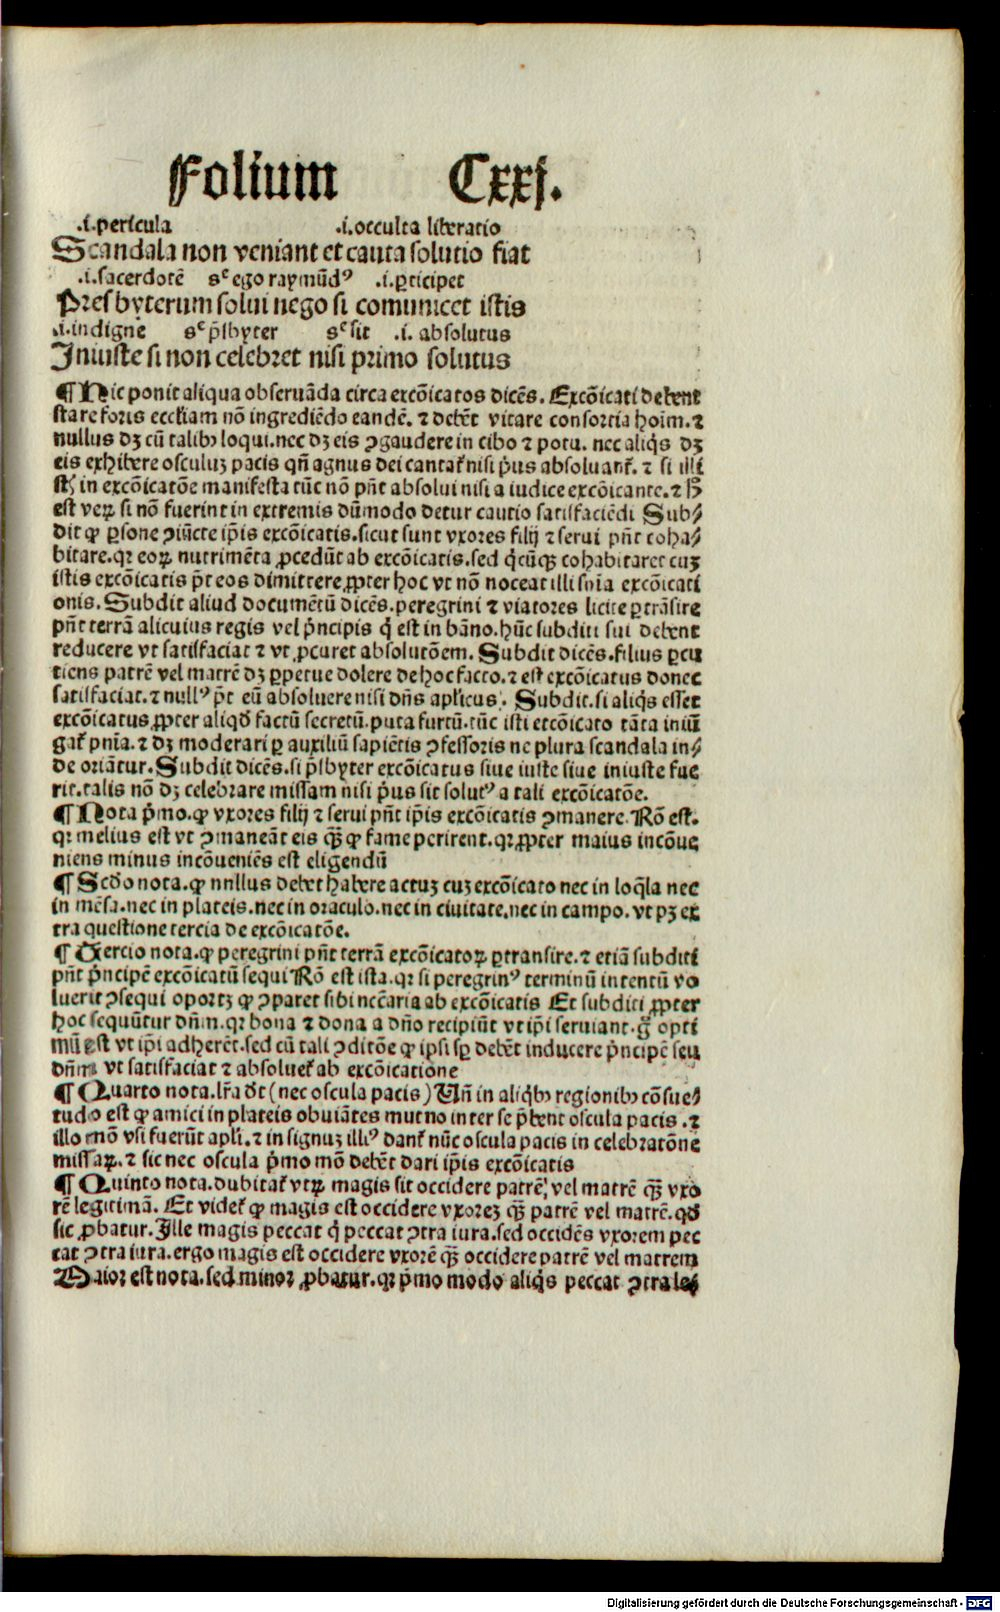 Folium Cxxj.
.i.pericula .i.occulta liberatio
Scandala non veniant et cauta solutio fiat
.i.sacerdotē sᶜ ego raymūdꝰ .i.ꝑticipet
Presbyterum solui nego si comunicet istis
.i.indigne sᶜ p̄sbyter sᶜ sit .i. absolutus
Iniuste si non celebret nisi primo solutus
¶ Hic ponit aliqua obseruāda circa excōicatos dicēs. Excōicati debent
stare foris eccliam nō ingrediēdo eandē. ⁊ debēt vitare consortia hoīm. ⁊
nullus dꝫ cū talibꝰ loqui. nec dꝫ eis ꝯgaudere in cibo ⁊ potu. nec aliq̇s dꝫ
eis exhibere osculuꝫ pacis qn̄ agnus dei cantat᷑ nisi p̄us absoluant᷑. ⁊ si illi
st̄ in excōicatōe manifesta tūc nō pn̄t absolui nisi a iudice excōicante. ⁊ ħ
est veꝝ si nō fuerint in extremis dūmodo detur cautio satisfaciēdi Sub⸗
dit ꝙ ꝑsone ꝯiūcte ip̄is excōicatis. sicut sunt vxores filij ⁊ serui pn̄t coha⸗
bitare. qr eoꝝ nutrimēta ꝓcedūt ab excōicatis. sed q̇cūqꝫ cohabitaret cuꝫ
istis excōicatis p̄t eos dimittere. ꝓpter hoc vt nō noceat illi sn̄ia excōicati
onis. Subdit aliud documētū dicēs. peregrini ⁊ viatores licite ꝑtrāsire
pn̄t terrā alicuius regis vel p̄ncipis q̇ est in bāno. hūc subditi sui debent
reducere vt satisfaciat ⁊ vt ꝓcuret absolutōem. Subdit dicēs. filius ꝑcu
tiens patrē vel matrē dꝫ ꝑpetue dolere de hoc facto. ⁊ est excōicatus donec
satisfaciat. ⁊ nullꝰ p̄t eū absoluere nisi dn̄s aplicus. Subdit. si aliq̇s esset
excōicatus ꝓpter aliqđ factū secretū. puta furtū. tūc isti etcōicato tāta iniū
gat᷑ pn̄ia. ⁊ dꝫ moderari ꝑ auxiliū sapiētis ꝯfessoris ne plura scandala in⸗
de oriātur. Subdit dicēs. si p̄sbyter excōicatus siue iuste siue iniuste fue
rit. talis nō dꝫ celebrare missam nisi p̄us sit solutꝰ a tali excōicatōe.
¶ Nota p̄mo. ꝙ vxores filij ⁊ serui pn̄t ip̄is excōicatis ꝯmanere. Rō est.
qr melius est vt ꝯmaneāt eis qꝫ̄ ꝙ fame perirent. qr ꝓpter maius incōue
niens minus incōueniēs est eligendū
¶ Scđo nota. ꝙ nnllus debet habere actuꝫ cuꝫ excōicato nec in loq̄la nec
in mēsa. nec in plateis. nec in oraculo. nec in ciuitate. nec in campo. vt pꝫ ex
tra questione tercia de excōicatōe.
¶ Tercio nota. ꝙ peregrini pn̄t terrā excōicatoꝝ ꝑtransire. ⁊ etiā subditi
pn̄t p̄ncipē excōicatū sequi Rō est ista. qr si peregrinꝰ terminū intentū vo
luerit ꝯsequi oportꝫ ꝙ ꝯparet sibi necc̄aria ab excōicatis Et subditi ꝓpter
hoc sequūtur dn̄m. qr bona ⁊ dona a dn̄o recipiūt vt ip̄i seruiant. g̊ opti
mū est vt ip̄i adherēt. sed cū tali ꝯditōe ꝙ ipsi sꝑ debēt inducere p̄ncipē seu
dn̄m vt satisfaciat ⁊ absoluet᷑ ab excōicatione
¶ Quarto nota. lr̄a dꝛ (nec oscula pacis) Vn̄ in aliq̇bꝰ regionibꝰ cōsue⸗
tudo est ꝙ amici in plateis obuiātes mutuo inter se p̄bent oscula pacis. ⁊
illo mō vsi fuerūt apli. ⁊ in signuꝫ illiꝰ dant᷑ nūc oscula pacis in celebratōne
missaꝝ. ⁊ sic nec oscula p̄mo mō debēt dari ip̄is excōicatis
¶ Quinto nota. dubitat᷑ vtꝝ magis sit occidere patrē, vel matrē qꝫ̄ vxo
rē legitimā. Et videt᷑ ꝙ magis est occidere vxoreꝫ qꝫ̄ patrē vel matrē. qđ
sic ꝓbatur. Ille magis peccat q̇ peccat ꝯtra iura. sed occidēs vxorem pec
cat ꝯtra iura. ergo magis est occidere vxorē qꝫ̄ occidere patrē vel matrem
Maior est nota. sed minor ꝓbatur. qr p̄mo modo aliq̇s peccat ꝯtra le⸗
Digitalisierung gefördert durch die Deutsche Forschungsgemeinschaft - DFG